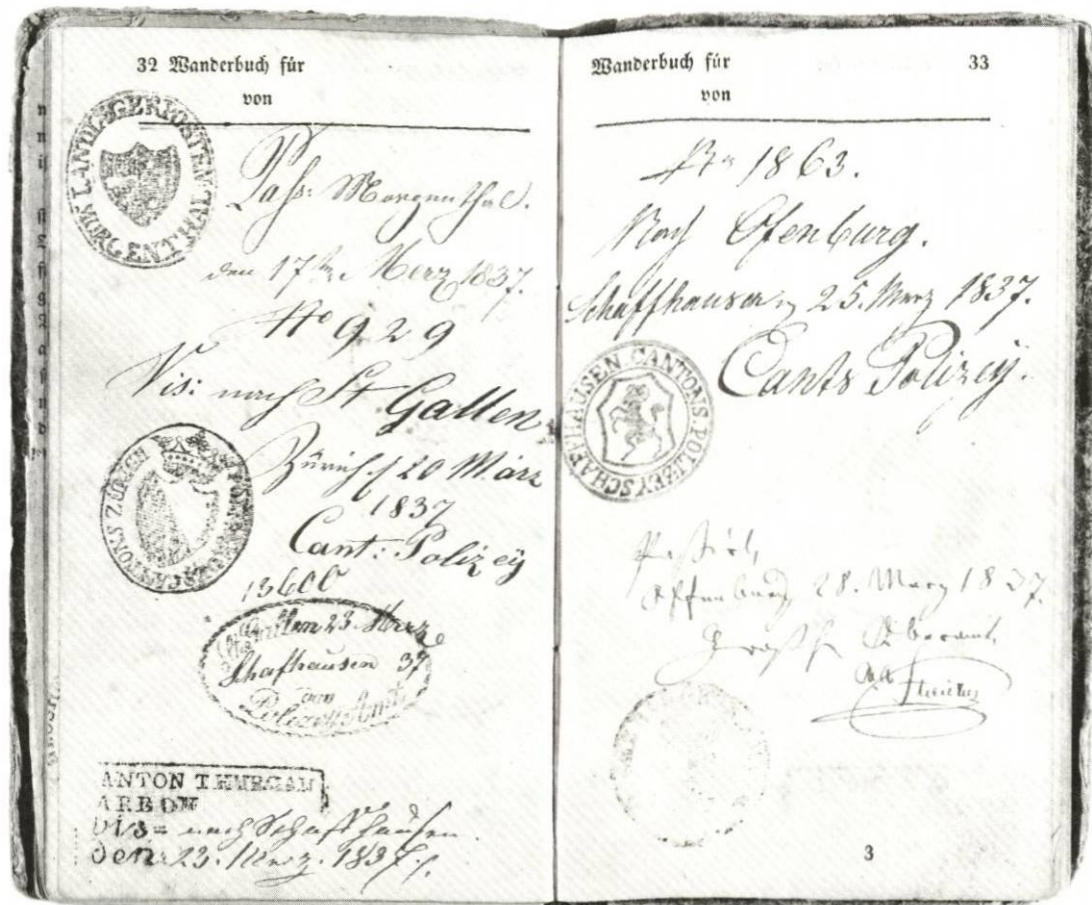 32 Wanderbuch für
von
LANDJÆGERPOSTEN
MORGENTHAL
Pass: Morgenthal.
den 17ten Merz 1837.
No 929
Vis: nach St Gallen
Zürich d 20 März
1837
Cant: Polizey
CANTONS ZÜRICH
13600
den 23 Merz
Schafhausen 37
von
Polizey-Amt
ARBON
Vis= nach Schaffhausen.
den 23. Merz. 1837.
Wanderbuch für 33
von
No 1863.
Nach Ofenburg.
Schaffhausen, 25. Merz 1837.
Cants Polizey.
CANTONS. POLIZEY SCHAFFHAUSEN
Passirt,
Offenburg 28. März 1837.
Großh. Oberamt.
3